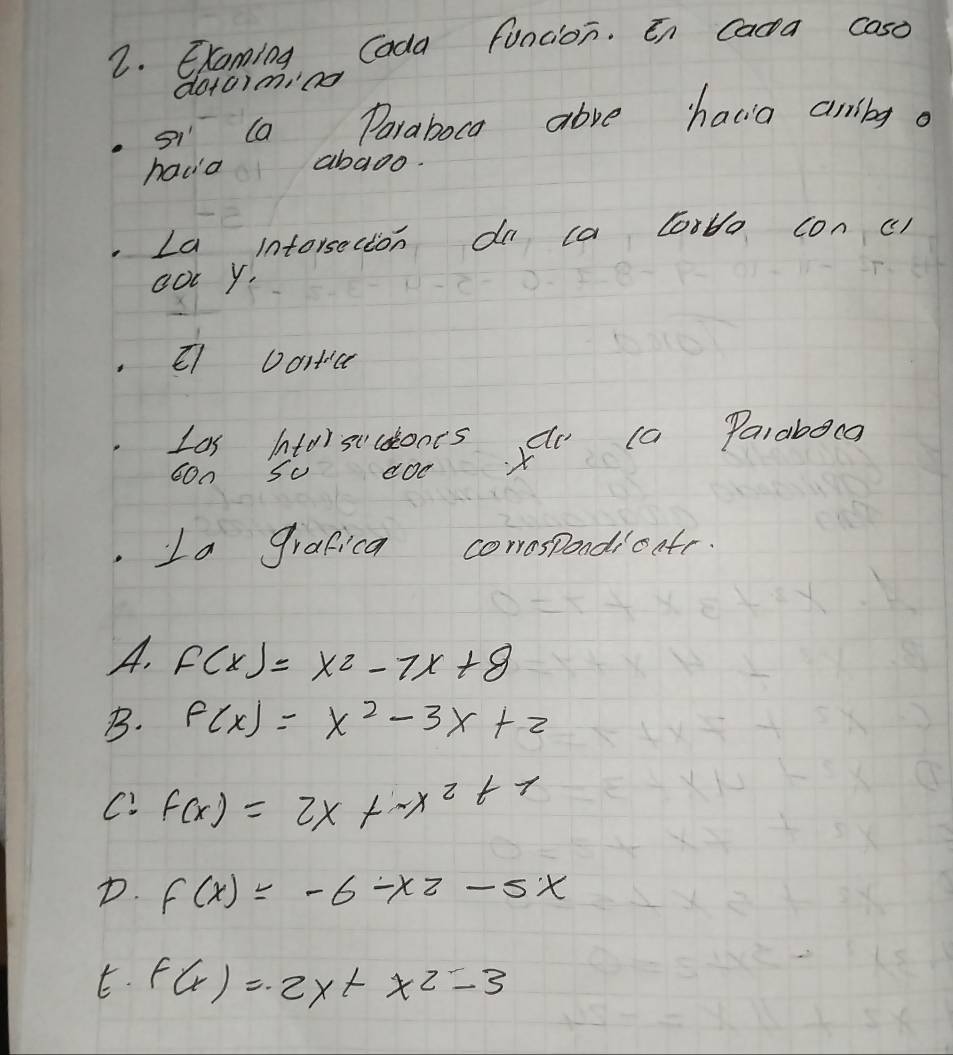 2. Examina Cada función. En Cada caso
determina
. si la Parabola abre hacia arriba o
hacia abajo.
. La intersección de la curva con el
eje y.
. El vertice
. Las intersecciones de la Parabola
con su eje x
. La grafica correspondiente.
A. f(x) = x2 - 7x + 8
B. f(x) = x² - 3x + 2
C: f(x) = 2x + -x² + 1
D. f(x) = -6 - x2 - 5x
E. f(x) = 2x + x2 - 3